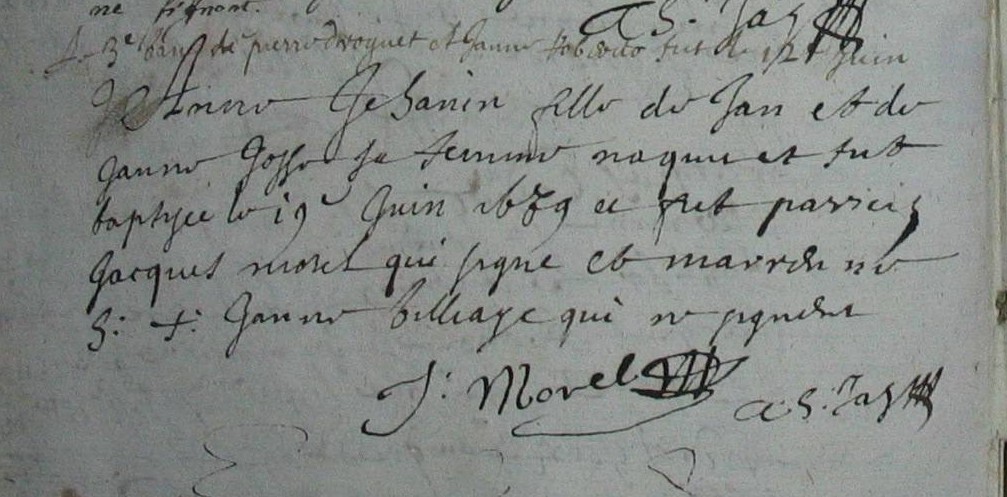 ne signont.
A S: Jas
Le 3e bans de pierre Droguet et Janne fut le 12e Juin
Anne Jehanin fille de Jan et de
Janne Gosse sa femme naquit et fut
baptysee le 19e Juin 1679 et fut parrein
Jacques morel qui signe et marrene
Janne billiage qui ne signent
J: Morel
a. S. Jas